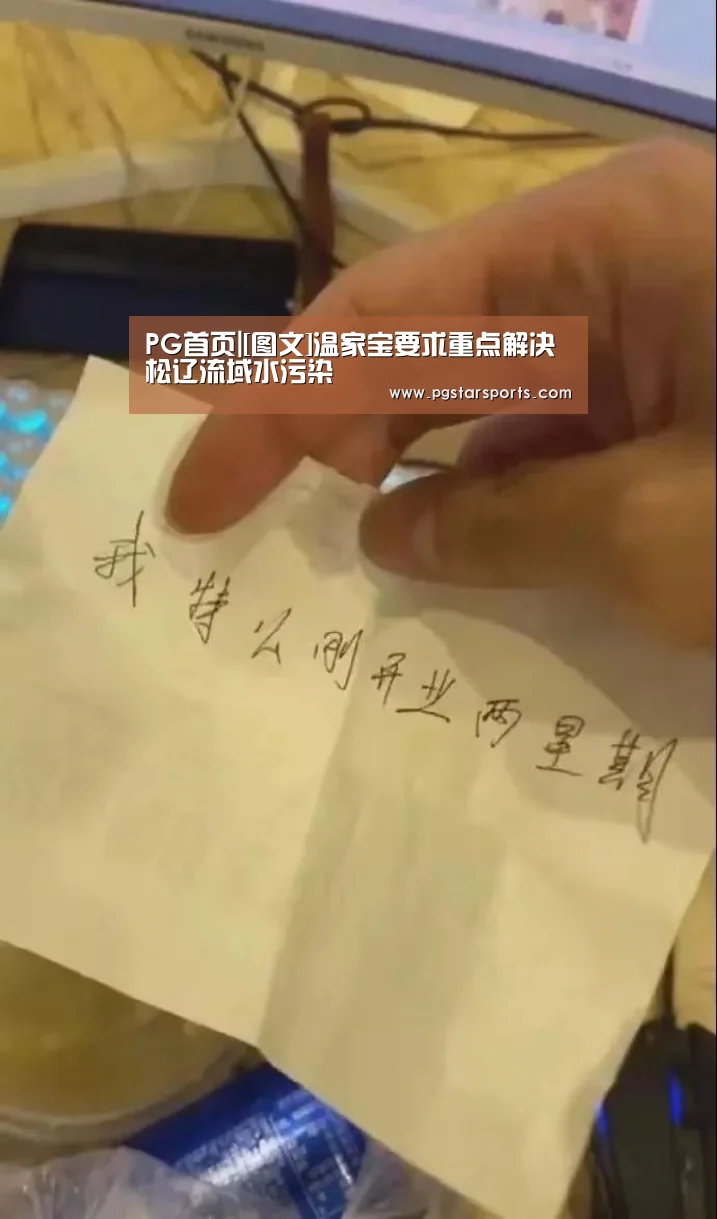 SAMSUNG
PG首页|[图文]温家宝要求重点解决
松辽流域水污染
www.pgstarsports.com
我特么刚开业两星期